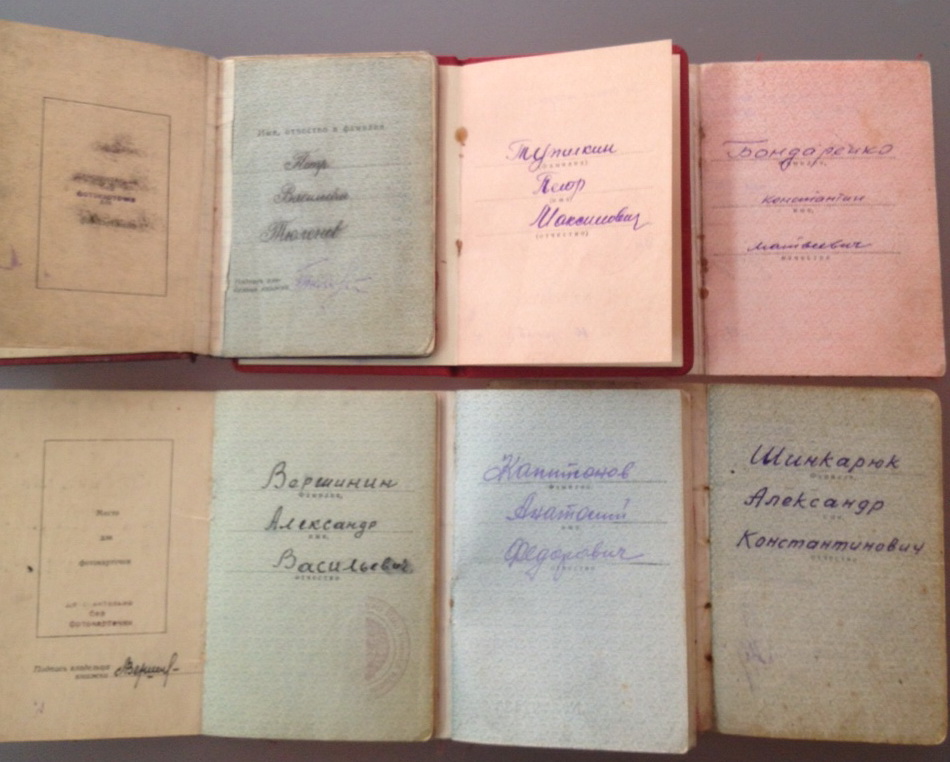 Имя, отчество и фамилия
Петр
Васильевич
Тюленев
Тупикин
(фамилия)
Петр
(имя)
Максимович
(отчество)
Бондаренко
Константин
имя,
Матвеевич
отчество
Место
для
фотокарточки
без
фотокарточки
Подпись владельца
книжки
Вершинин
Фамилия,
Александр
имя,
Васильевич
отчество
Капитонов
Фамилия,
Анатолий
имя,
Федорович
отчество
Шинкарюк
Фамилия,
Александр
имя,
Константинович
отчество